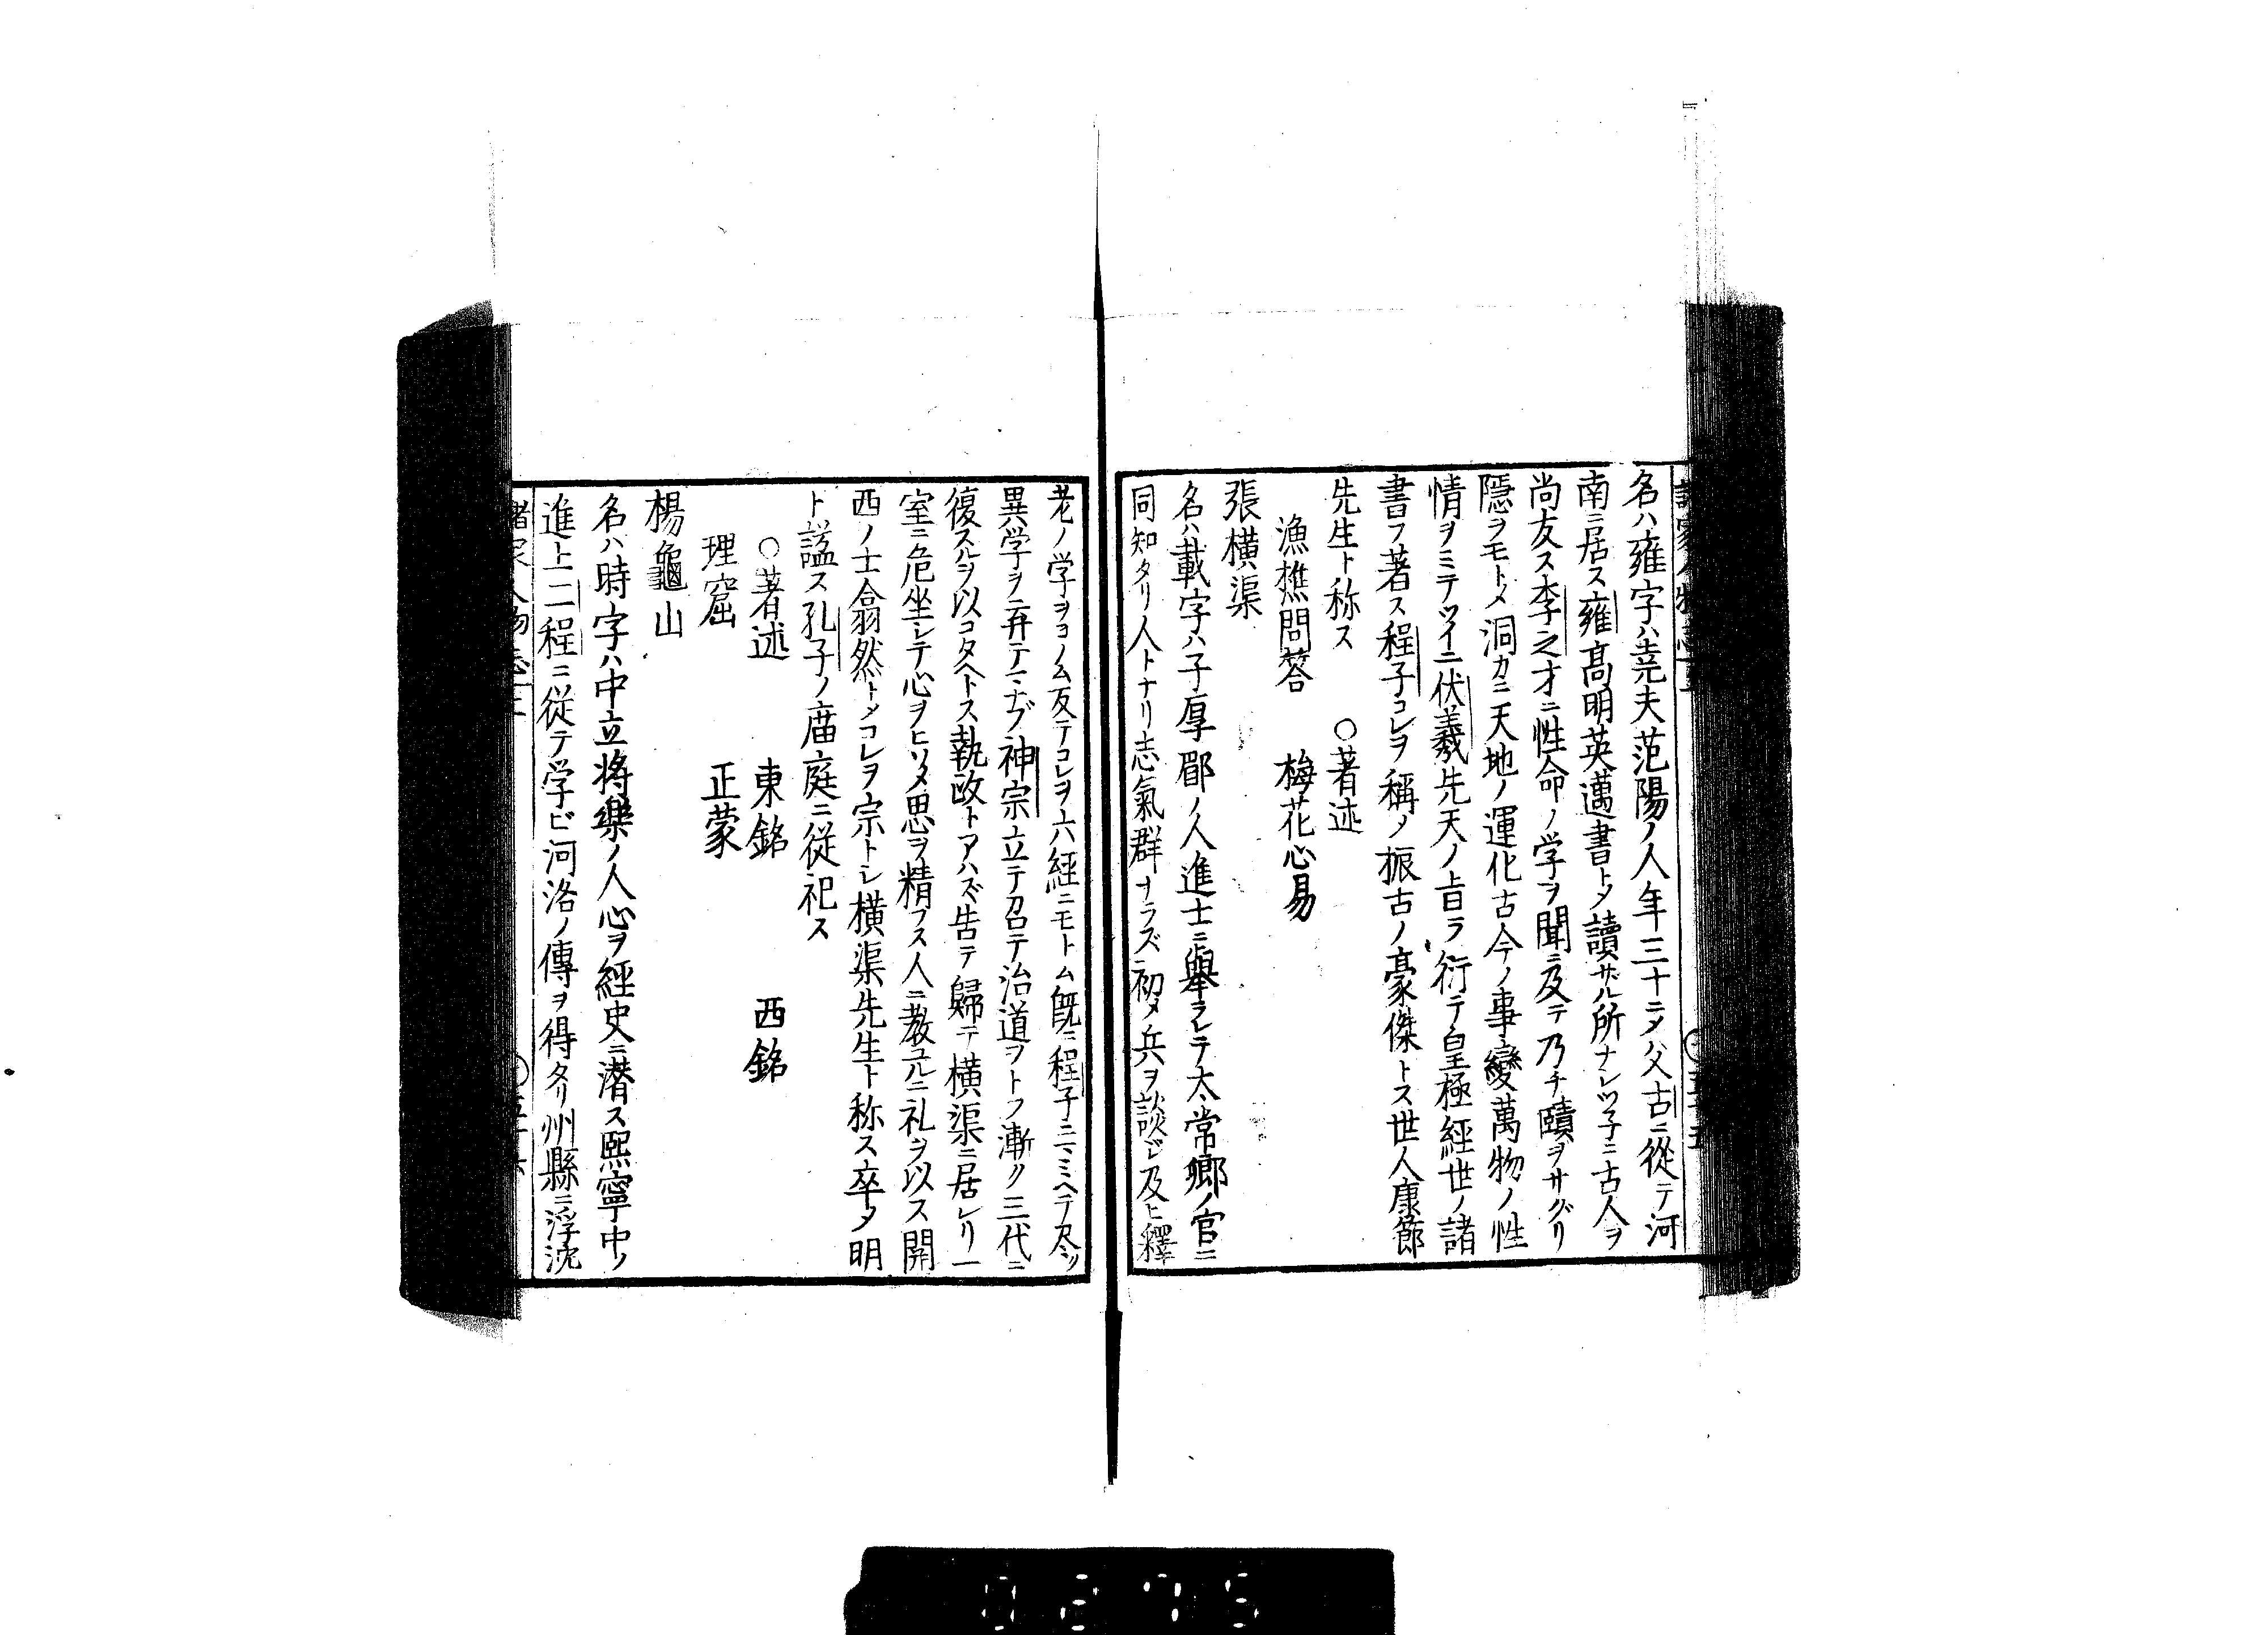 名ハ雍字ハ尭夫范陽ノ人年三十ニ〆父古ニ從テ河
南ニ居ス雍髙明英邁書ト〆讀サル所ナレツ子ニ古人ヲ
尚友ス李之才ニ性命ノ学ヲ聞ニ及テ乃チ賾ヲサグリ
隱ヲモト〆洞カニ天地ノ運化古今ノ事變萬物ノ性
情ヲミテツイニ伏羲先天ノ旨ヲ衍テ皇極經世ノ諸
書フ著ス程子コレヲ稱〆振古ノ豪傑トス世人康節
先生ト称ス　○著述
漁樵問答　梅花心易
張横渠
名ハ載字ハ子厚郿ノ人進士ニ舉ラレテ太常郷ノ官ニ
同知タリ人トナリ志氣群ヲラズ初メ兵ヲ談ジ及ヒ釋
老ノ学ヲコノム反テコレヲ六經ニモトム既ニ程子ニミヘテ尽ク
異学ヲ弃テマナブ神宗立テ召テ治道ヲトフ漸ク三代ニ
復スルヲ以コタヘトス執政トアハズ告テ歸テ横渠ニ居レリ一
室ニ危坐シテ心ヲヒソメ思ヲ精フス人ニ教ユルニ礼ヲ以ス関
西ノ士翕然ト〆コレヲ宗トシ横渠先生ト称ス卒〆明
ト諡ス孔子ノ庿庭ニ從祀ス
○著述　東銘　西銘
理窟　正蒙
楊龜山
名ハ時字ハ中立将樂ノ人心ヲ經史ニ潜ス熈寧中ノ
進士二程ニ從テ学ビ河洛ノ傳ヲ得タリ州縣ニ浮沈
0275